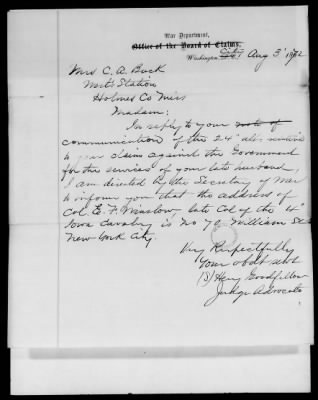 War Department,
Office of the Board of Claims,
Washington, City Aug 3' 1872
Mrs C. A. Bock
Station
Holmes Co Miss
Madam:
In reply to your note of
communication of the 24" ult.
to your claim against the Government
for the services of your late husband,
I am directed by the Secretary of War
to inform you that the address of
Col. E. F. Winslow late Col of the 4"
Iowa Cavalry is No 70 William St
New York City.
Very Respectfully
Your obdt servt
(S) Henry Goodfellow
Judge Advocate